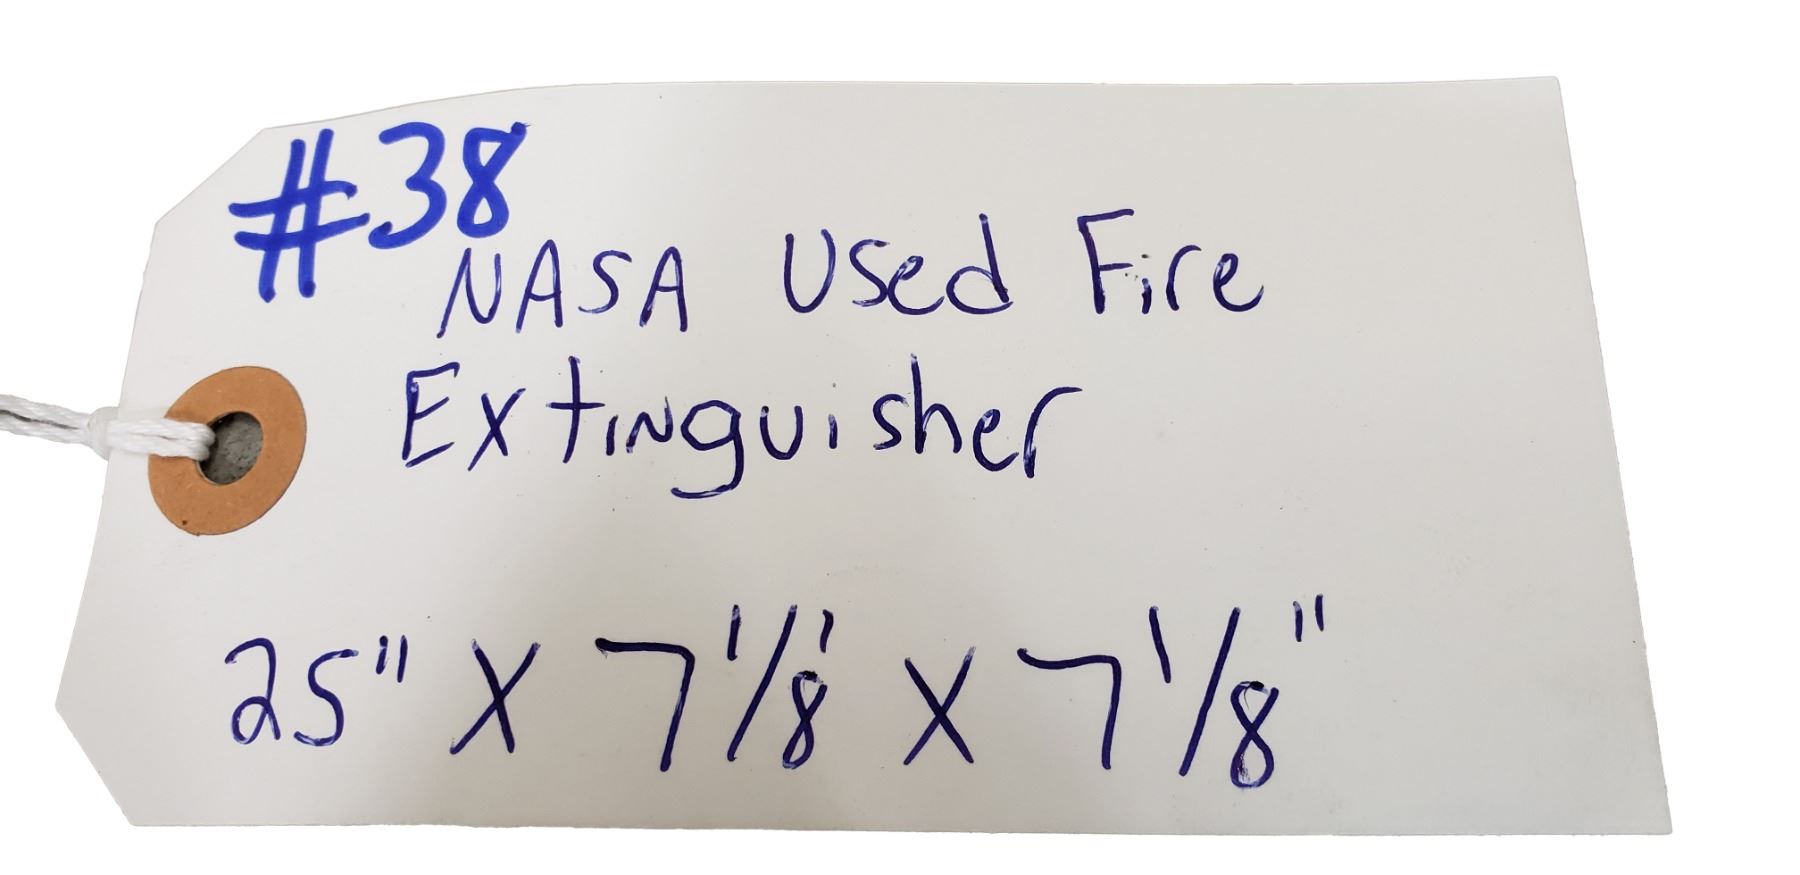 #38
NASA Used Fire
Extinguisher
25" X 7 1/8' X 7 1/8"